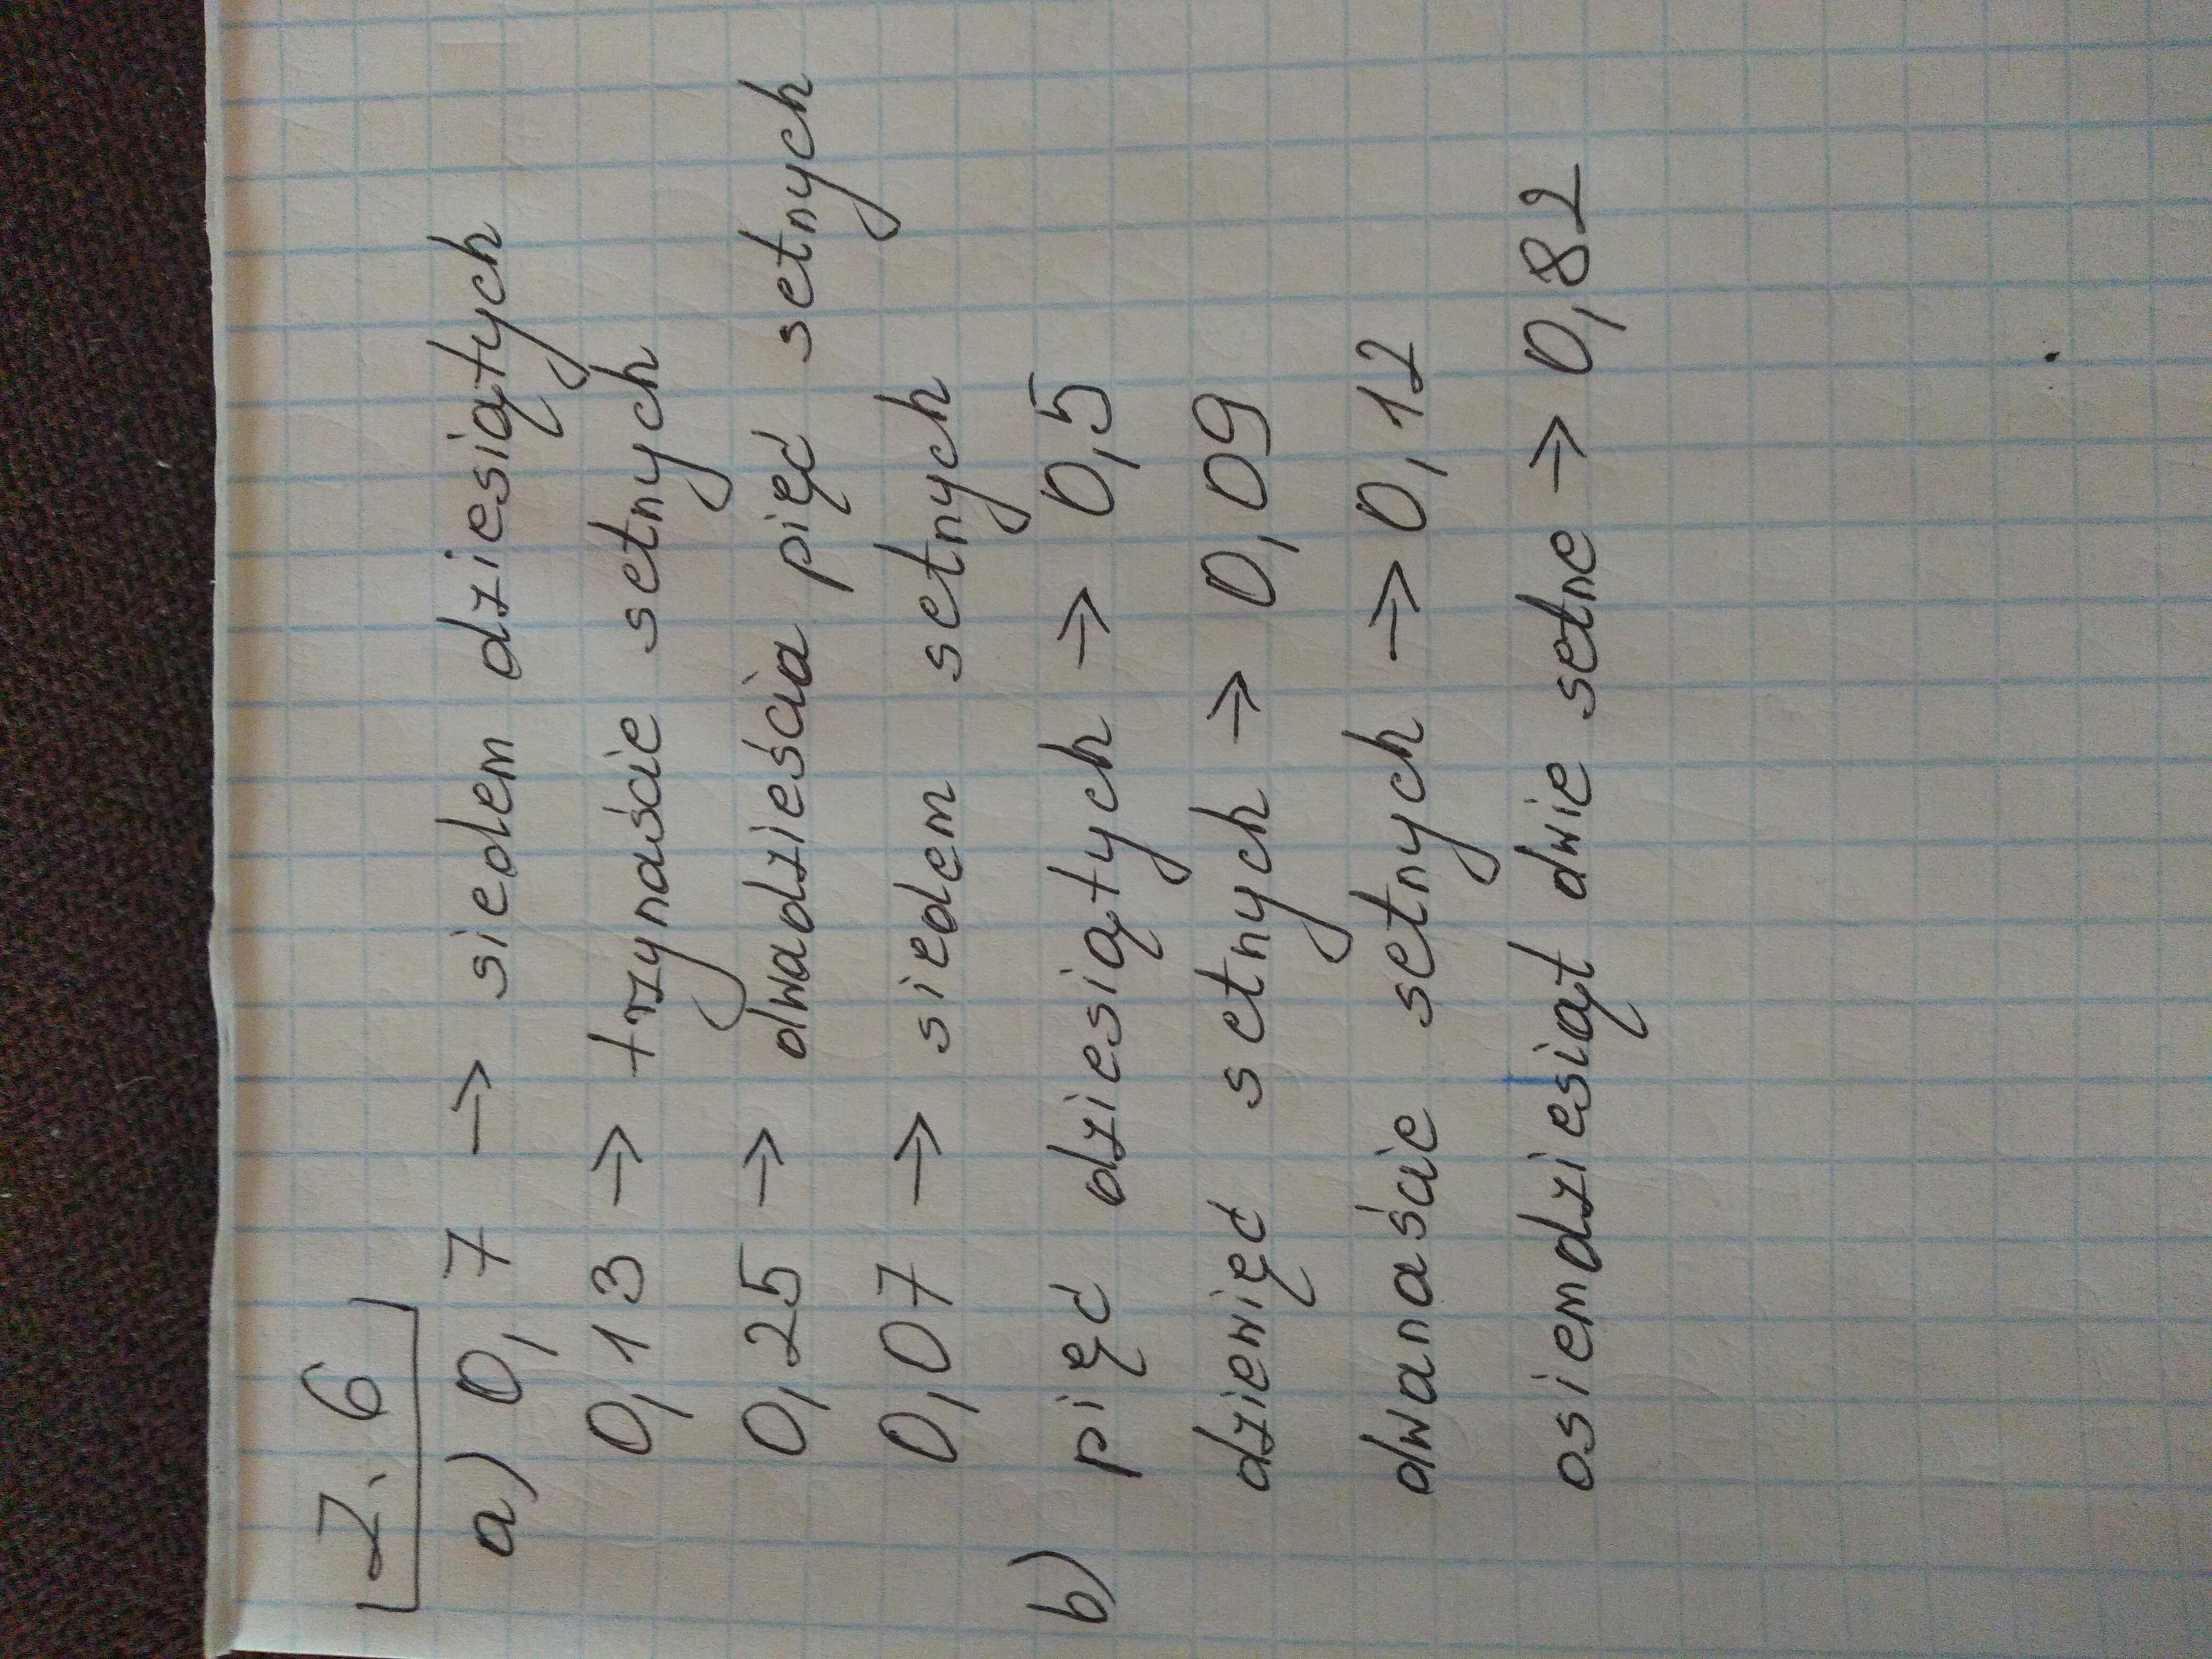 Z. 6
a) 0,7 → siedem dziesiątych
0,13 → trzynaście setnych
0,25 → dwadzieścia pięć setnych
0,07 → siedem setnych
b) pięć dziesiątych → 0,5
dziewięć setnych → 0,09
dwanaście setnych → 0,12
osiemdziesiąt dwie setne → 0,82